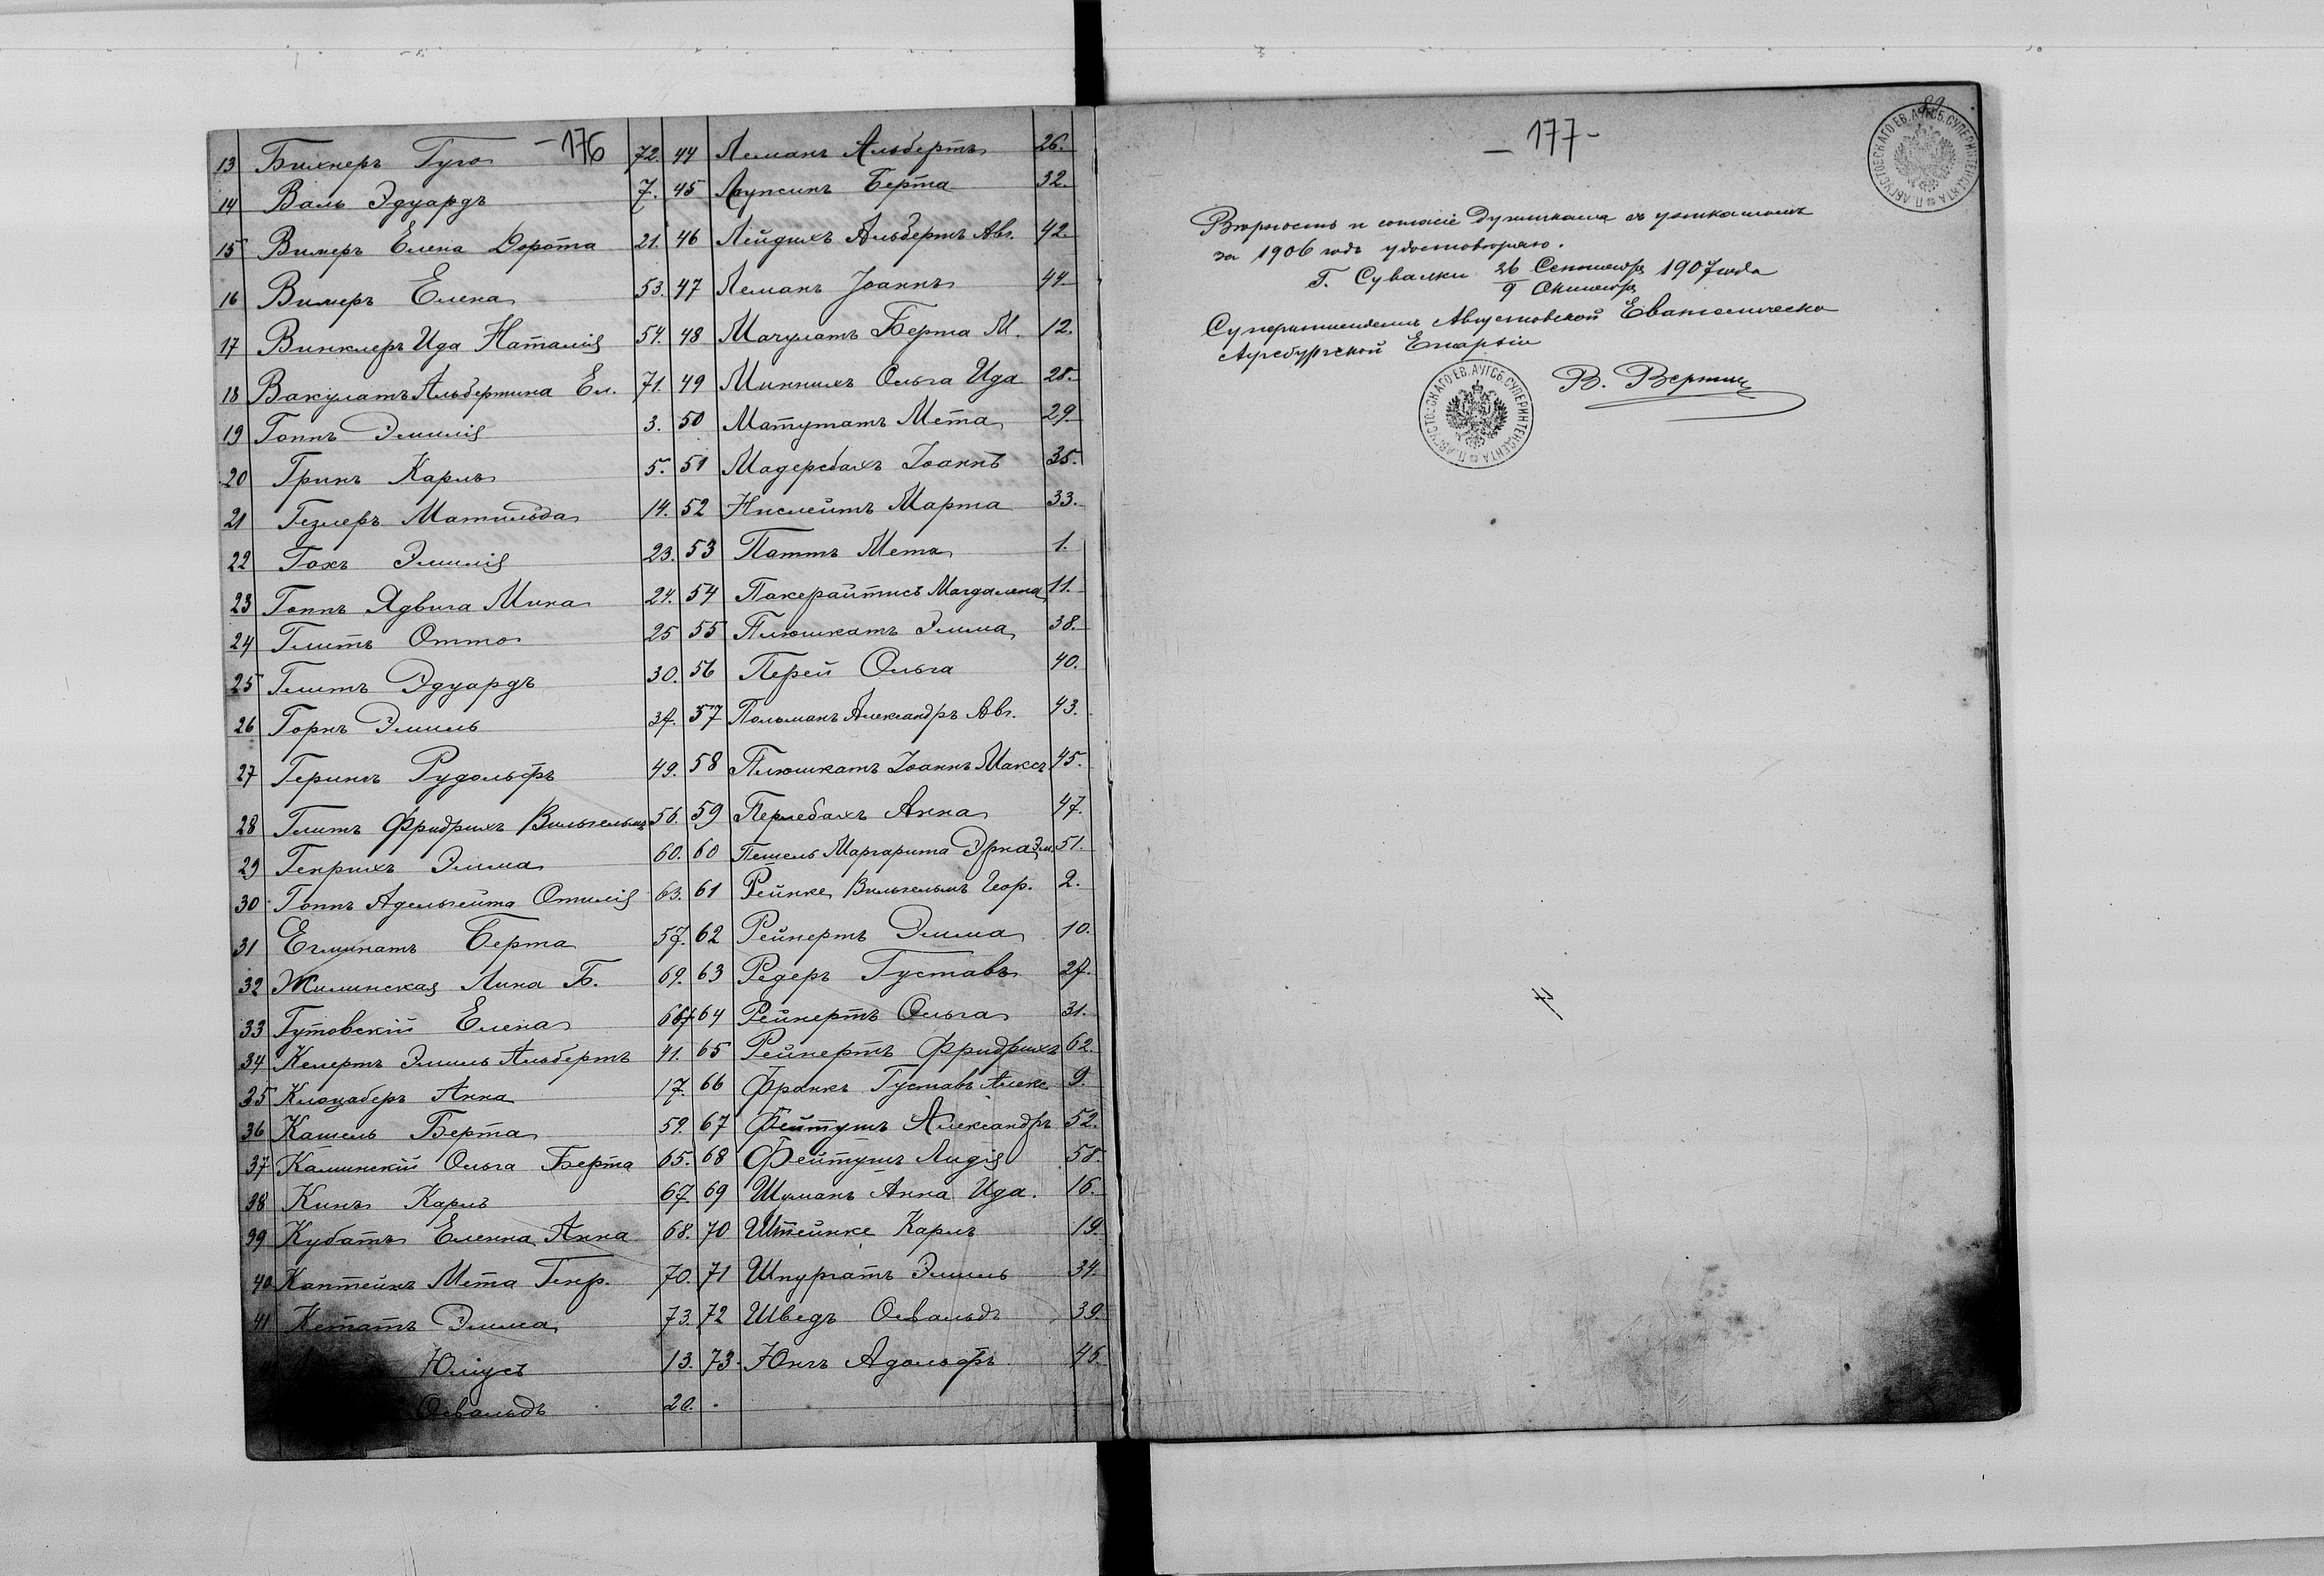 – 176
13 Бихнеръ Гуго 72.
14 Валь Эдуардъ 7.
15 Вимеръ Елена Дорота 21.
16 Вимеръ Елена 53.
17 Винклеръ Ида Наталія 54.
18 Вакулатъ Альбертина Ел. 71.
19 Гоппъ Эмилія 3.
20 Гринъ Карлъ 5.
21 Гезлеръ Матильда 14.
22 Гохъ Эмилія 23.
23 Гоппъ Ядвига Мина 24.
24 Глитъ Отто 25
25 Глитъ Эдуардъ 30.
26 Горнъ Эмиль 37.
27 Герингъ Рудольфъ 49.
28 Глитъ Фридрихъ Вильгельмъ 56.
29 Генрихъ Эмма 60.
30 Гоппъ Адельгейта Отилія 63.
31 Еглинатъ Берта 57.
32 Жилинская Лина Б. 69.
33 Гутовскій Елена 66.
34 Келертъ Эмиль Альбертъ 41.
35 Клоцаберъ Анна 17.
36 Кашель Берта 59.
37 Калинскій Ольга Берта 65.
38 Кинъ Карлъ 67.
39 Кубатъ Еленна Анна 68.
40 Каптейнъ Мета Генр. 70.
41 Кетатъ Эмма 73.
Юліусъ 13.
Освальдъ 20.
44 Леманъ Альбертъ 26.
45 Лупсинъ Берта 32.
46 Лейдихъ Альбертъ Авг. 42.
47 Леманъ Іоаннъ 44.
48 Мачулатъ Берта М. 12.
49 Миннихъ Ольга Ида 28.
50 Матутатъ Мета 29.
51 Мадерсбахъ Іоаннъ 35.
52 Нислейтъ Марта 33.
53 Паттъ Мета 1.
54 Пакерайтисъ Магдалена 11.
55 Плюшкатъ Эмма 38.
56 Перей Ольга 40.
57 Польманъ Александръ Авг. 43.
58 Плюшкатъ Іоаннъ Максъ 45.
59 Перлебахъ Анна 47.
60 Пешель Маргарита Эрна Эм. 51.
61 Рейнке Вильгельмъ Геор. 2.
62 Рейнертъ Эмма 10.
63 Редеръ Густавъ 27.
64 Рейнертъ Ольга 31.
65 Рейнертъ Фридрихъ 62.
66 Франкъ Густавъ Алекс 9.
67 Фейтушъ Александръ 52.
68 Фейтушъ Лидія 58.
69 Шуманъ Анна Ида. 16.
70 Штейнке Карлъ 19.
71 Шпургатъ Эмиль 34.
72 Шведъ Освальдъ 39.
73. Юнгъ Адольфъ 46.
– 177 –
П. АВГУСТОВСКАГО ЕВ. АУГСБ. СУПЕРИНТЕНДЕНТА
Вѣрность и согласіе Дупликата съ уникатомъ
за 1906 годъ удостовѣряю.
Г. Сувалки 26 Сентября 1907 года
9 Октября
Суперинтендентъ Августовской Евангелическо
Аугсбургской Епархіи
П. АВГУСТОВСКАГО ЕВ. АУГСБ. СУПЕРИНТЕНДЕНТА